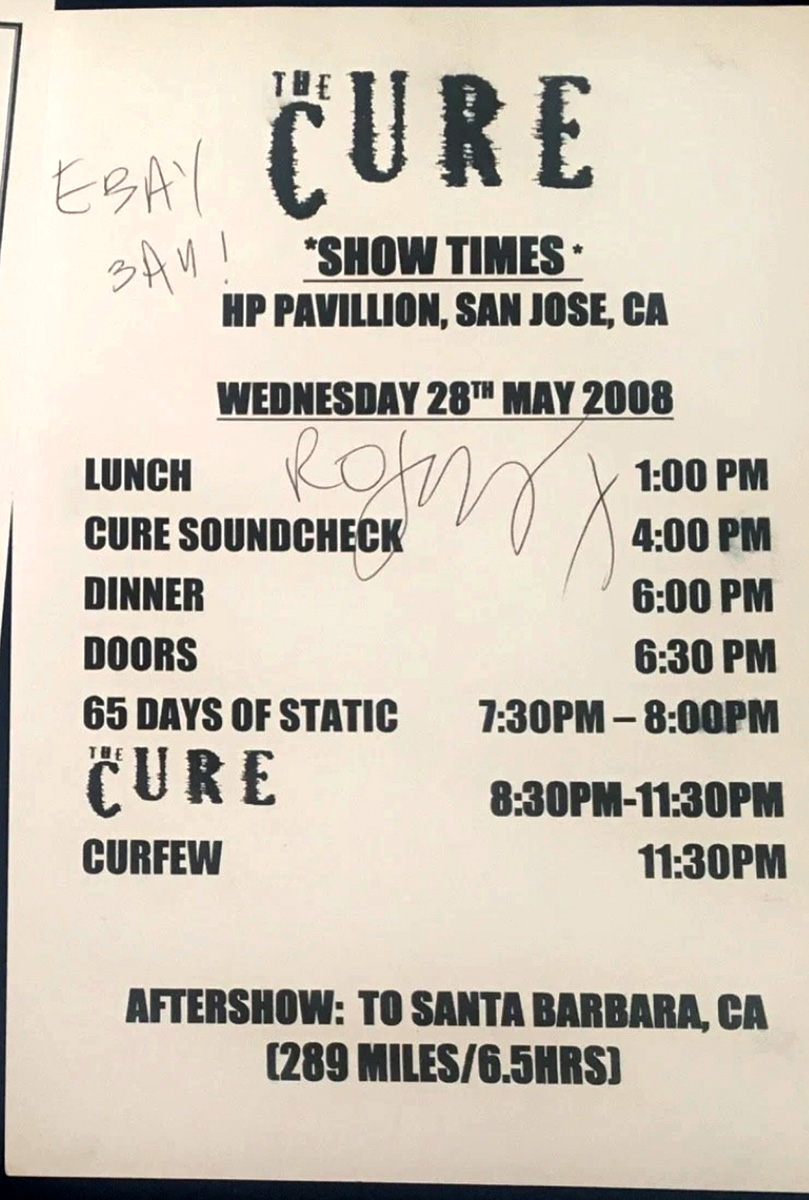 THE CURE
EBAY
BAY!
*SHOW TIMES*
HP PAVILLION, SAN JOSE, CA
WEDNESDAY 28TH MAY 2008
LUNCH 1:00 PM
CURE SOUNDCHECK 4:00 PM
DINNER 6:00 PM
DOORS 6:30 PM
65 DAYS OF STATIC 7:30PM – 8:00PM
THE CURE 8:30PM-11:30PM
CURFEW 11:30PM
AFTERSHOW: TO SANTA BARBARA, CA
(289 MILES/6.5HRS)